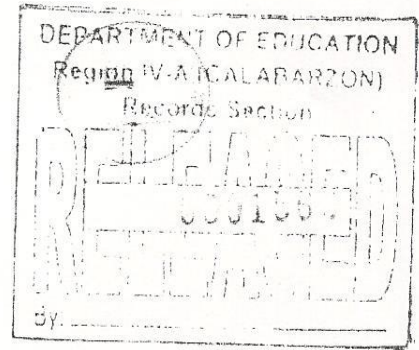 DEPARTMENT OF EDUCATION
Region IV-A (CALABARZON)
Records Section
RELEASED
By: